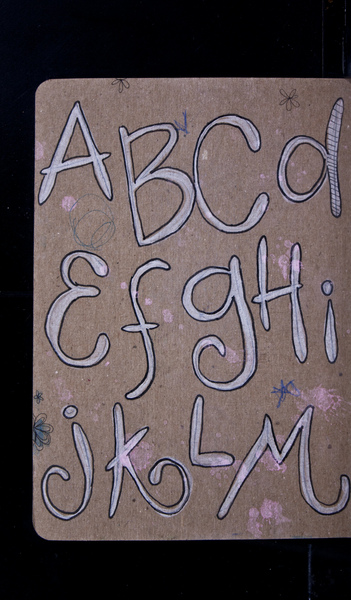 ABCd
EfgHi
jkLM